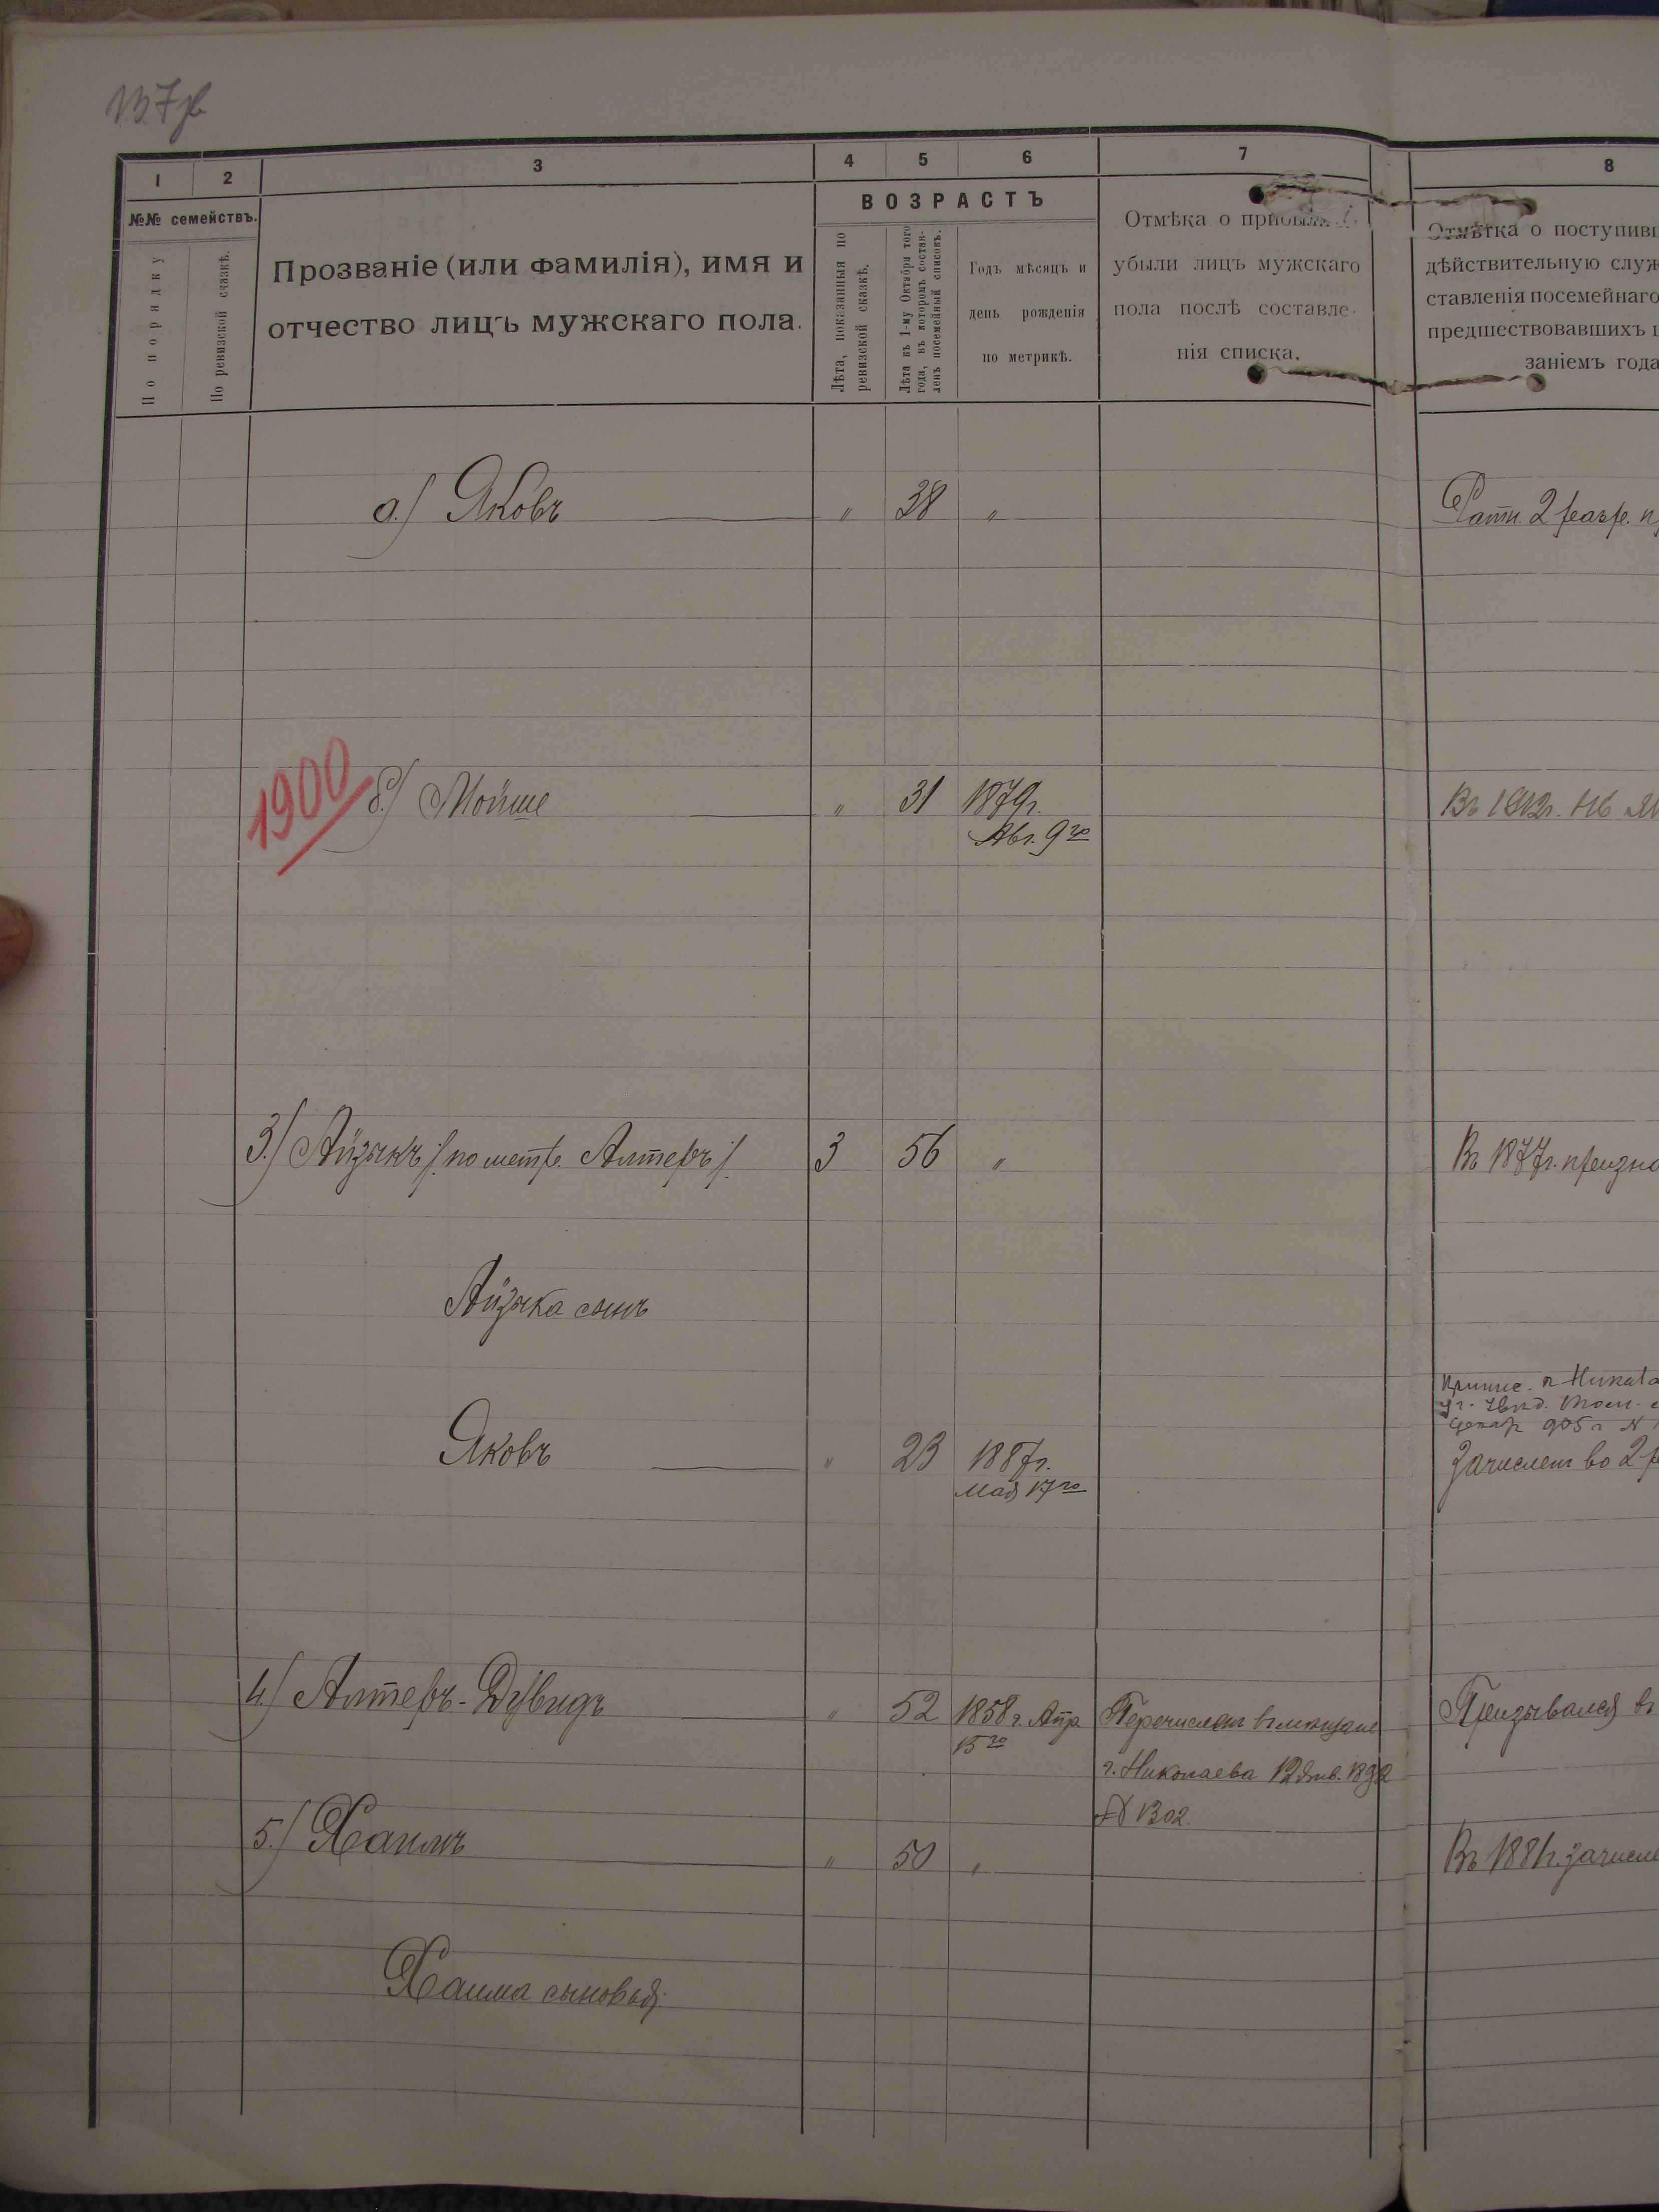 137
1 2 3 4 5 6 7 8
№№ семействъ.
По порядку
По ревизской сказкѣ.
Прозваніе (или фамилія), имя и
отчество лицъ мужскаго пола.
ВОЗРАСТЪ
Лѣта, показанныя по
ревизской сказкѣ.
Лѣта къ 1-му Октября того
года, въ которомъ состав-
ленъ посемейный списокъ.
Годъ мѣсяцъ и
день рожденія
по метрикѣ.
Отмѣка о прибыли
убыли лицъ мужскаго
пола послѣ составле-
нія списка.
Отмѣтка о поступивш
дѣйствительную служ
ставленія посемейнаго
предшествовавшихъ
заніемъ года
а) Яковъ " 38 " Ратн. 2 разр.
1900 б) Мойше " 31 1879г. Въ 1902г.
Авг. 9го
3) Айзыкъ /по метр. Алтеръ/ 3 56 " Въ 1877г. призна
Айзыка сынъ
905 г. №
Яковъ " 23 1887г. Зачисленъ во 2
Мая 17го
4) Алтеръ-Дувидъ " 52 1858 г. Апр. Перечисленъ въ мѣщане Призывался въ
15го
г. Николаева 12 Янв. 1892
№ 1302.
5) Хаимъ " 50 " Въ 1881г. зачисле
Хаима сыновья: